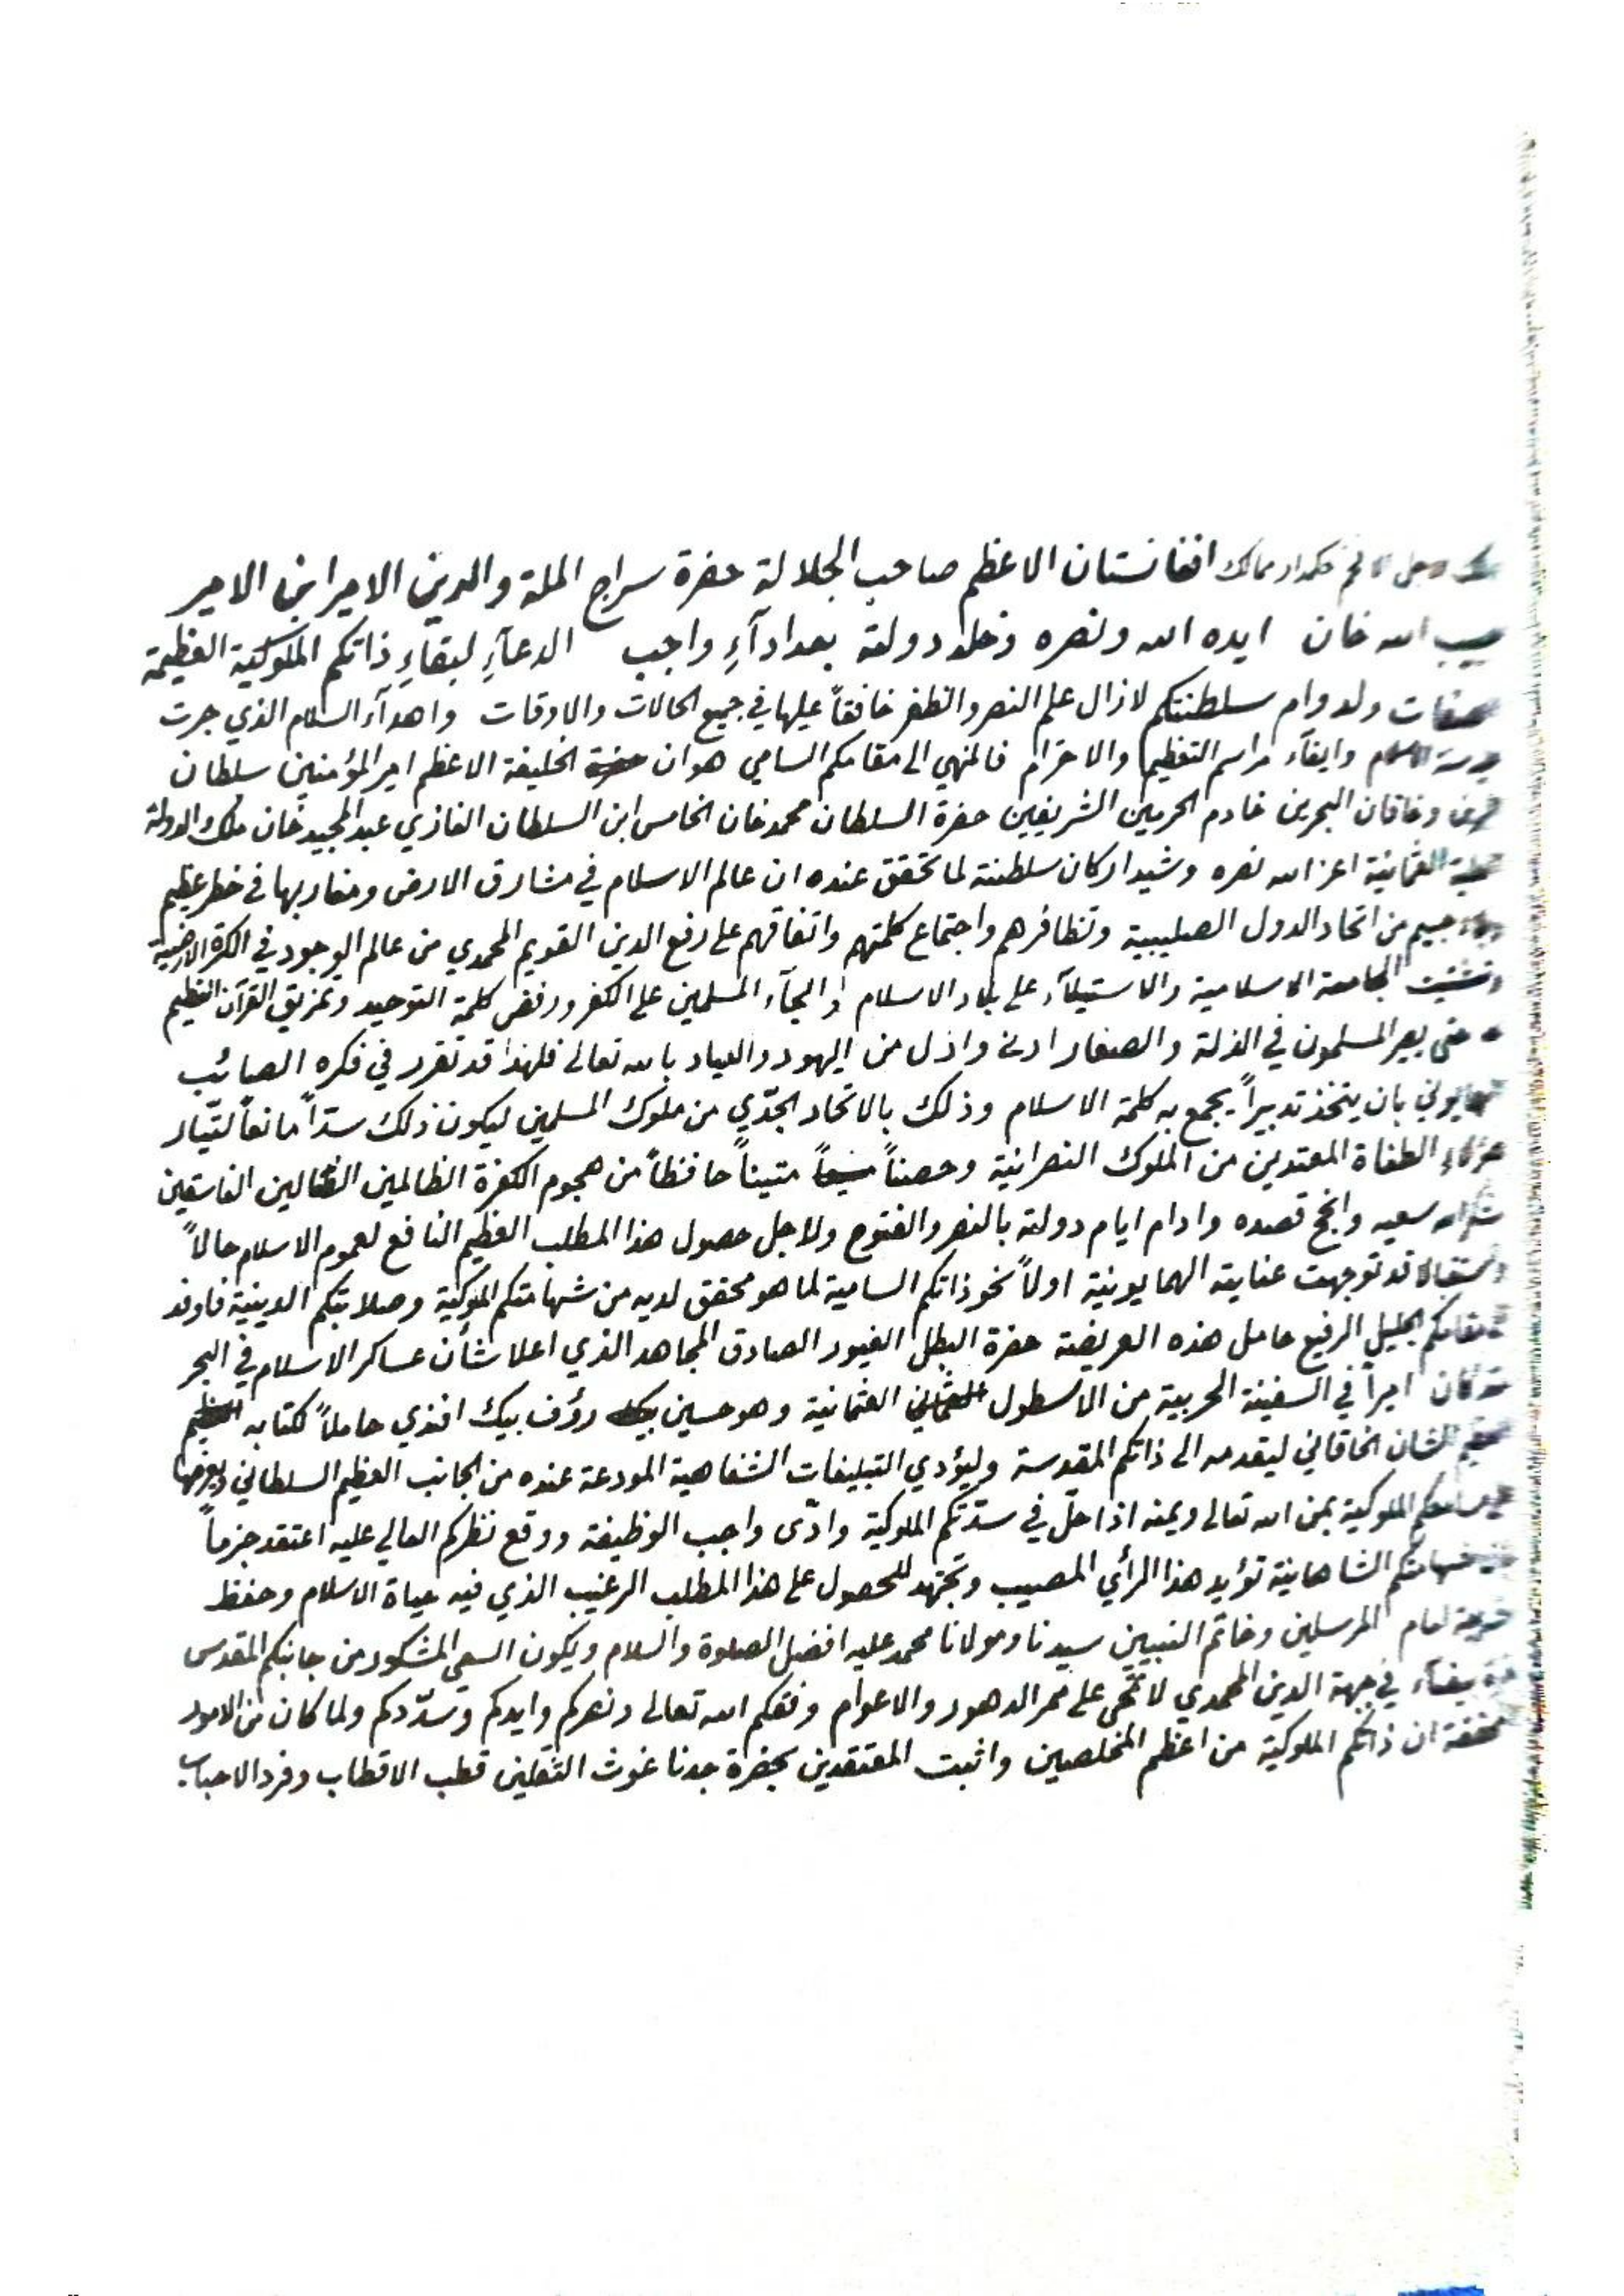 افغانستان الاعظم صاحب الجلالة حضرة سراج الملة والدين الامير ابن الامير
الله خان ايده الله ونصره وخلد دولته بعد ادآءِ واجب الدعآءِ لبقاءِ ذاتكم الملوكية العظيمة
ولدوام سلطنتكم لازال علم النصر والظفر خافقاً عليها في جميع الحالات والاوقات واهدآء السلام الذي جرت
وايفآء مراسم التعظيم والاحترام فالمنهي الى مقامكم السامي هو ان حضرة الخليفة الاعظم امير المؤمنين سلطان
وخاقان البحرين خادم الحرمين الشريفين حضرة السلطان محمد خان الخامس ابن السلطان الغازي عبد المجيد خان ملك الدولة
العثمانية اعز الله نصره وشيد اركان سلطنته لما تحقق عنده ان عالم الاسلام في مشارق الارض ومغاربها في خطر عظيم
جسيم من اتحاد الدول الصليبية وتظافرهم واجتماع كلمتهم واتفاقهم على رفع الدين القويم المحمدي من عالم الوجود في الكرة الارضية
وتشتيت الجامعة الاسلامية والاستيلآء على بلاد الاسلام والجآء المسلمين على الكفر ورفض كلمة التوحيد وتمزيق القرآن العظيم
حتى يصير المسلمون في الذلة والصغار ادنى واذل من اليهود والعياد بالله تعالى فلهذا قد تقرر في فكره الصائب
بان يتخذ تدبيراً يجمع به كلمة الاسلام وذلك بالاتحاد الجدّي من ملوك المسلمين ليكون ذلك سدّاً مانعاً لتيّار
هؤلاء الطغاة المعتدين من الملوك النصرانية وحصناً متيناً حافظاً من هجوم الكفرة الظالمين الضالين الفاسقين
شكر الله سعيه وانجح قصده وادام ايام دولته بالنصر والفتوح ولاجل حصول هذا المطلب العظيم النافع لعموم الاسلام حالاً
واستقبالا قد توجهت عنايته الهمايونية اولاً نحو ذاتكم السامية لما هو محقق لديه من شهامتكم الملوكية وصلابتكم الدينية فاوفد
لمقامكم الجليل الرفيع حامل هذه العريضة حضرة البطل الغيور الصادق المجاهد الذي اعلا شأن عساكر الاسلام في البحر
كان اميراً في السفينة الحربية من الاسطول العثمانية وهو حسين رؤف بيك افندي حاملاً كتابه
الشان الخاقاني ليقدمه الى ذاتكم المقدسة وليؤدي التبليغات الشفاهية المودعة عنده من الجانب العظيم السلطاني ويعرضها
الملوكية بمن الله تعالى ويمنه اذا حلّ في سدّتكم الملوكية وادّى واجب الوظيفة ووقع نظركم العالي عليه اعتقد جزماً
شهامتكم الشاهانية تؤيد هذا الرأي المصيب وتجتهد للحصول على هذا المطلب الرغيب الذي فيه حياة الاسلام وحفظ
شريعة امام المرسلين وخاتم النبيين سيدنا ومولانا محمد عليه افضل الصلوة والسلام ويكون السعي المشكور من جانبكم المقدس
بيضآء في جبهة الدين المحمدي لا تمحى على ممر الدهور والاعوام وفقكم الله تعالى ونصركم وايدكم وسدّدكم ولما كان من الامور
المحققة ان ذاتكم الملوكية من اعظم المخلصين واثبت المعتقدين بحضرة جدنا غوث الثقلين قطب الاقطاب وفرد الاحباب